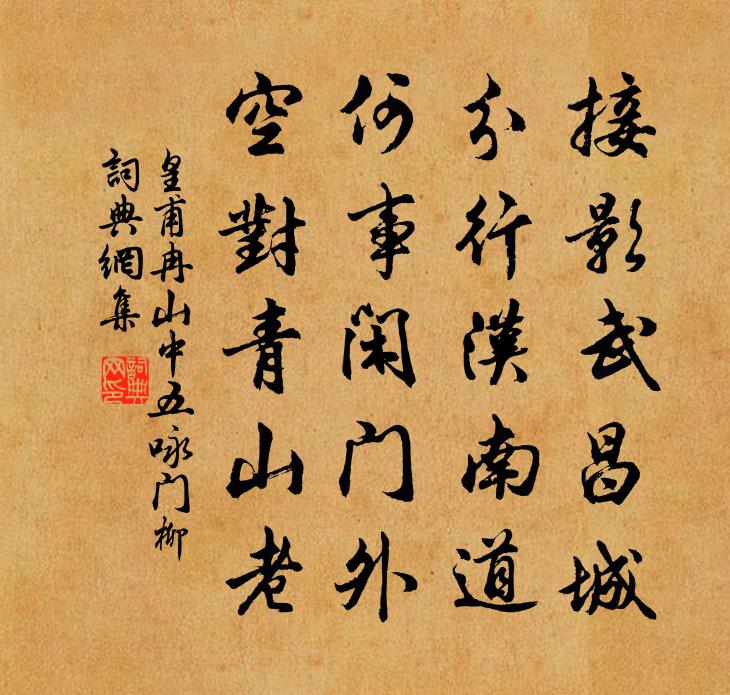 接影武昌城
分行漢南道
何事閑门外
空對青山老
皇甫冉山中五咏门柳
詞典網集
詞典网印